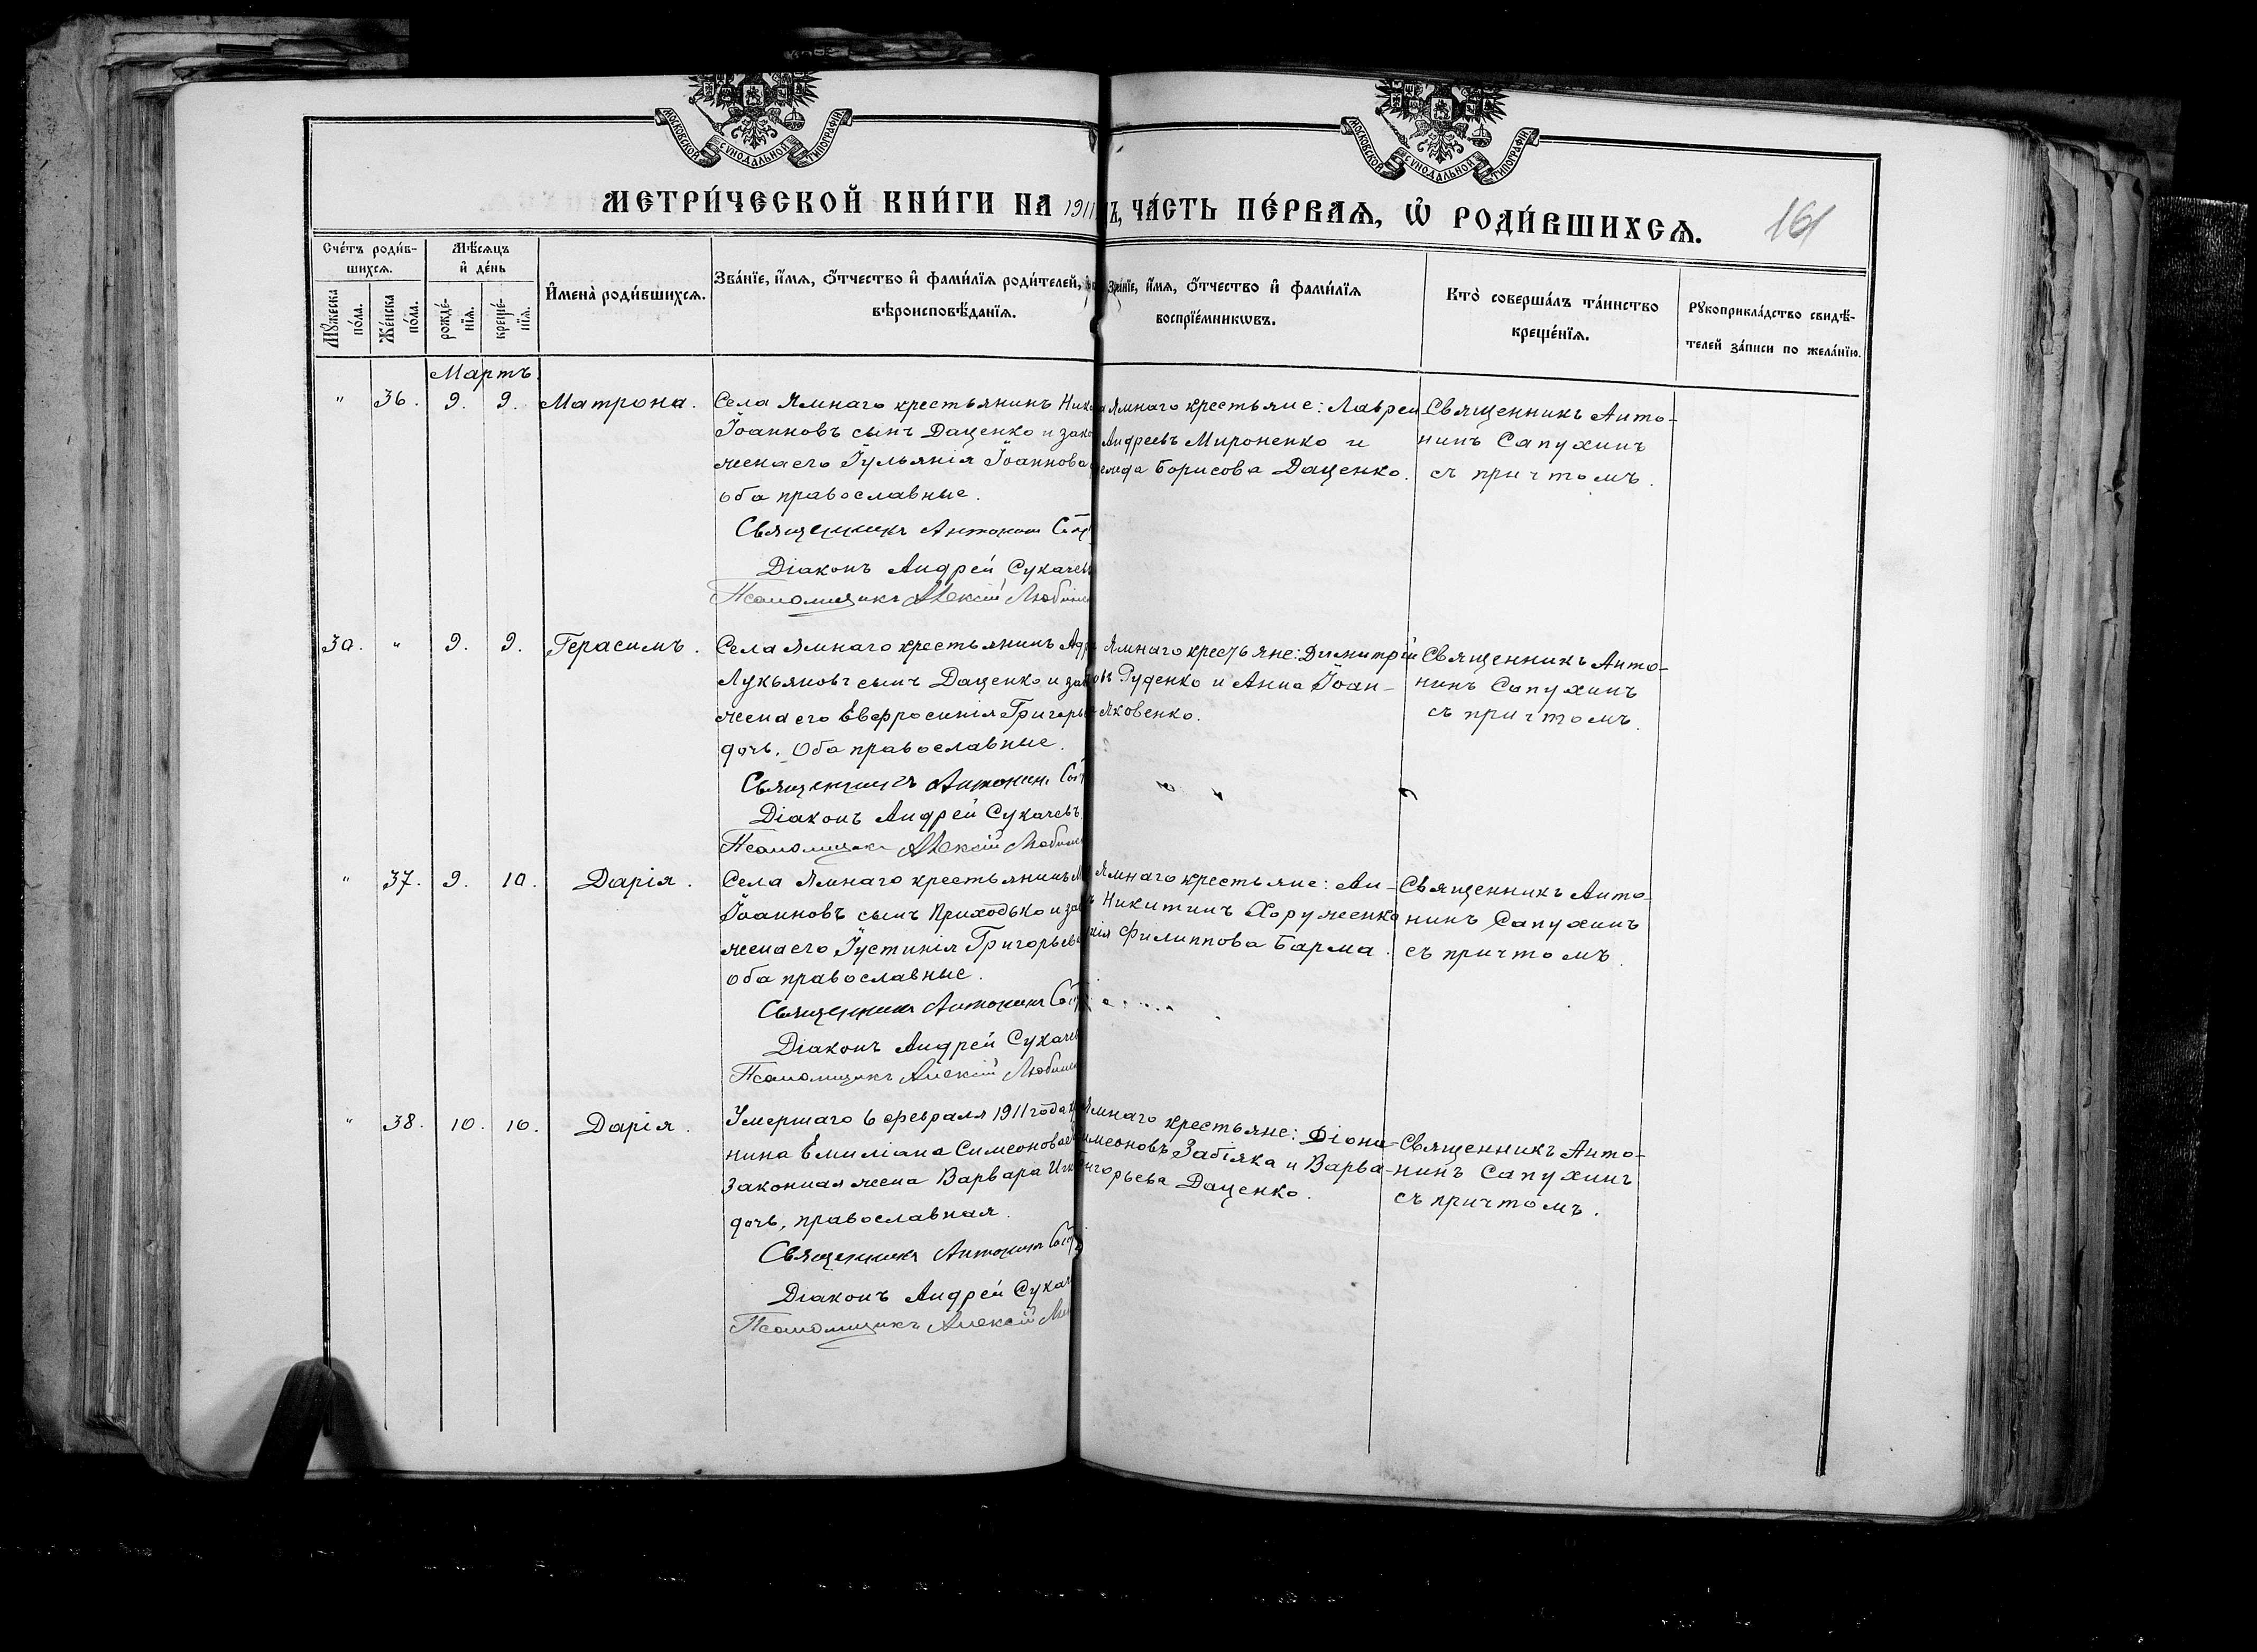 МОСКОВСКОЙ СѴНОДАЛЬНОЙ ТИПОГРАФІИ
МОСКОВСКОЙ СѴНОДАЛЬНОЙ ТИПОГРАФІИ
МЕТРИ́ЧЕСКОЙ КНИ́ГИ НА 1911
Ъ, ЧА́СТЬ ПЕ́РВАѦ, Ѡ РОДИ́ВШИХСѦ.
161
Сче́тъ роди́в-
шихсѧ.
Мꙋ́жеска
по́ла.
Же́нска
по́ла.
Мѣ́сѧцъ
и де́нь
рожде́-
нїѧ.
креще́-
нїѧ.
Имена̀ роди́вшихсѧ.
Зва́нїе, и́мѧ, ѻ҆́тчество и фами́лїѧ роди́телей,
вѣроисповѣ́данїѧ.
Зва́нїе, и́мѧ, ѻ҆́тчество и фами́лїѧ
воспрїе́мникѡвъ.
Кто̀ соверша́лъ та́инство
креще́нїѧ.
Рꙋкоприкла́дство свидѣ́-
телей за́писи по жела́нїю.
Мартъ.
" 36. 9. 9. Матрона.
Села Ямнаго крестьянинъ
Іоанновъ сынъ Даценко и
жена его Іульянія Іоаннова
оба православные.
Священникъ Антонинъ
Діаконъ Андрей Сукачевъ
Псаломщикъ Алексій
Ямнаго крестьяне:
Андреевъ Мироненко и
Борисова Даценко.
Священникъ Анто-
нинъ Сапухинъ
съ причтомъ.
30. " 9. 9. Герасимъ.
Села Ямнаго крестьянинъ
Лукьяновъ сынъ Даценко и
жена его Евфросинія
дочь. Оба православные.
Священникъ Антонинъ
Діаконъ Андрей Сукачевъ
Псаломщикъ Алексій
Ямнаго крестьяне: Димитрій
Руденко и Анна Іоан-
Яковенко.
Священникъ Анто-
нинъ Сапухинъ
съ причтомъ.
" 37. 9. 10. Дарія.
Села Ямнаго крестьянинъ
Іоанновъ сынъ Приходько и
жена его Іустинія
оба православные.
Священникъ Антонинъ
Діаконъ Андрей
Псаломщикъ Алексій
Ямнаго крестьяне: Ан-
Никитинъ Хоруженко
Филиппова Барма.
Священникъ Анто-
нинъ Сапухинъ
съ причтомъ.
" 38. 10. 10. Дарія.
Умершаго 6 февраля 1911 года
нина Емиліана Симеонова
законная жена Варвара
дочь, православная.
Священникъ Антонинъ
Діаконъ Андрей
Псаломщикъ Алексій
Ямнаго крестьяне: Діони-
Забіяка и Варва-
Даценко.
Священникъ Анто-
нинъ Сапухинъ
съ причтомъ.